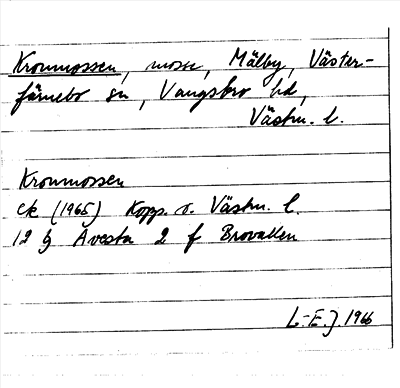 Kronmossen, mosse, Mälby, Väster-
färnebo sn, Vangsbro hd,
Västm. l.
Kronmossen
ek (1965) Kopp. o. Västm. l.
12 g Avesta 2 f Brovallen
L-E.J. 1966